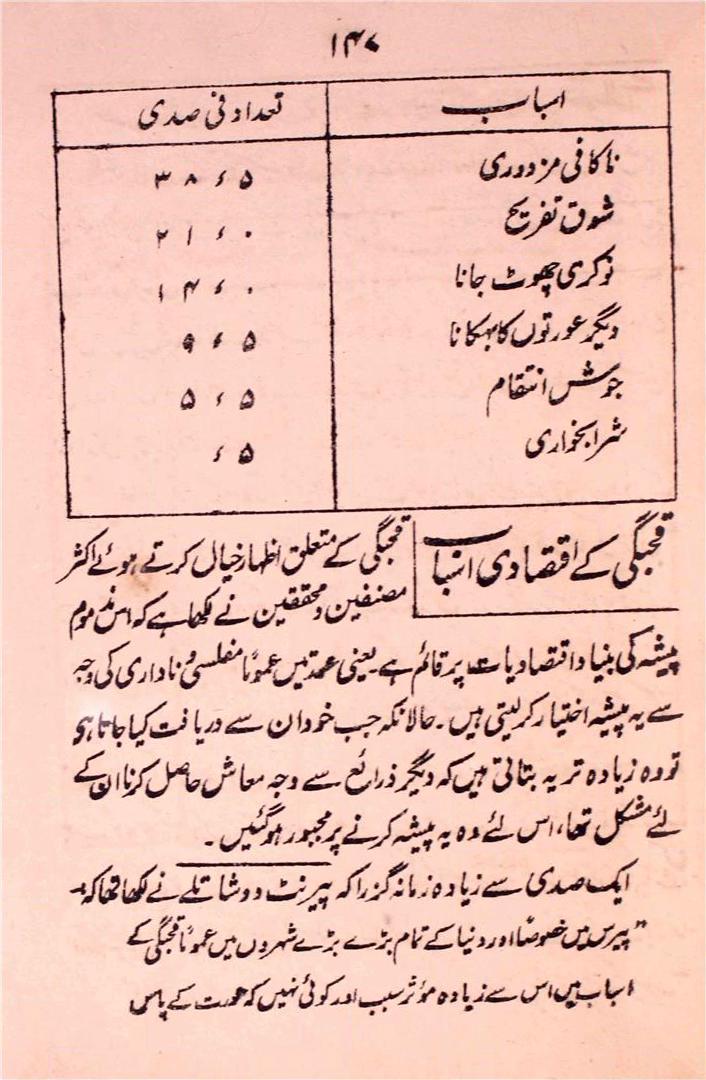 ۱۴۷
اسباب تعداد فی صدی
ناکافی مزدوری ۳۸٫۵
شوق تفریح ۲۱٫۰
نوکری چھوٹ جانا ۱۴٫۰
دیگر عورتوں کا بہکانا ۹٫۵
جوش انتقام ۵٫۵
شرابخواری ٫۵
قحبگی کے اقتصادی اسباب
قحبگی کے متعلق اظہار خیال کرتے ہوئے اکثر
مصنفین و محققین نے لکھا ہے کہ اس مذموم
پیشہ کی بنیاد اقتصادیات پر قائم ہے۔ یعنی عورتیں عموماً مفلسی و ناداری کی وجہ
سے یہ پیشہ اختیار کرلیتی ہیں۔ حالانکہ جب خود ان سے دریافت کیا جاتا ہو
تو وہ زیادہ تر یہ بتاتی ہیں کہ دیگر ذرائع سے وجہ معاش حاصل کرنا ان کے
لئے مشکل تھا، اس لئے وہ یہ پیشہ کرنے پر مجبور ہوگئیں۔
ایک صدی سے زیادہ زمانہ گزرا کہ پیرنٹ دوشاتلے نے لکھا تھا کہ۔
"پیرس میں خصوصاً اور دنیا کے تمام بڑے بڑے شہروں میں عموماً قحبگی کے
اسباب میں اس سے زیادہ مؤثر سبب اور کوئی نہیں کہ عورت کے پاس